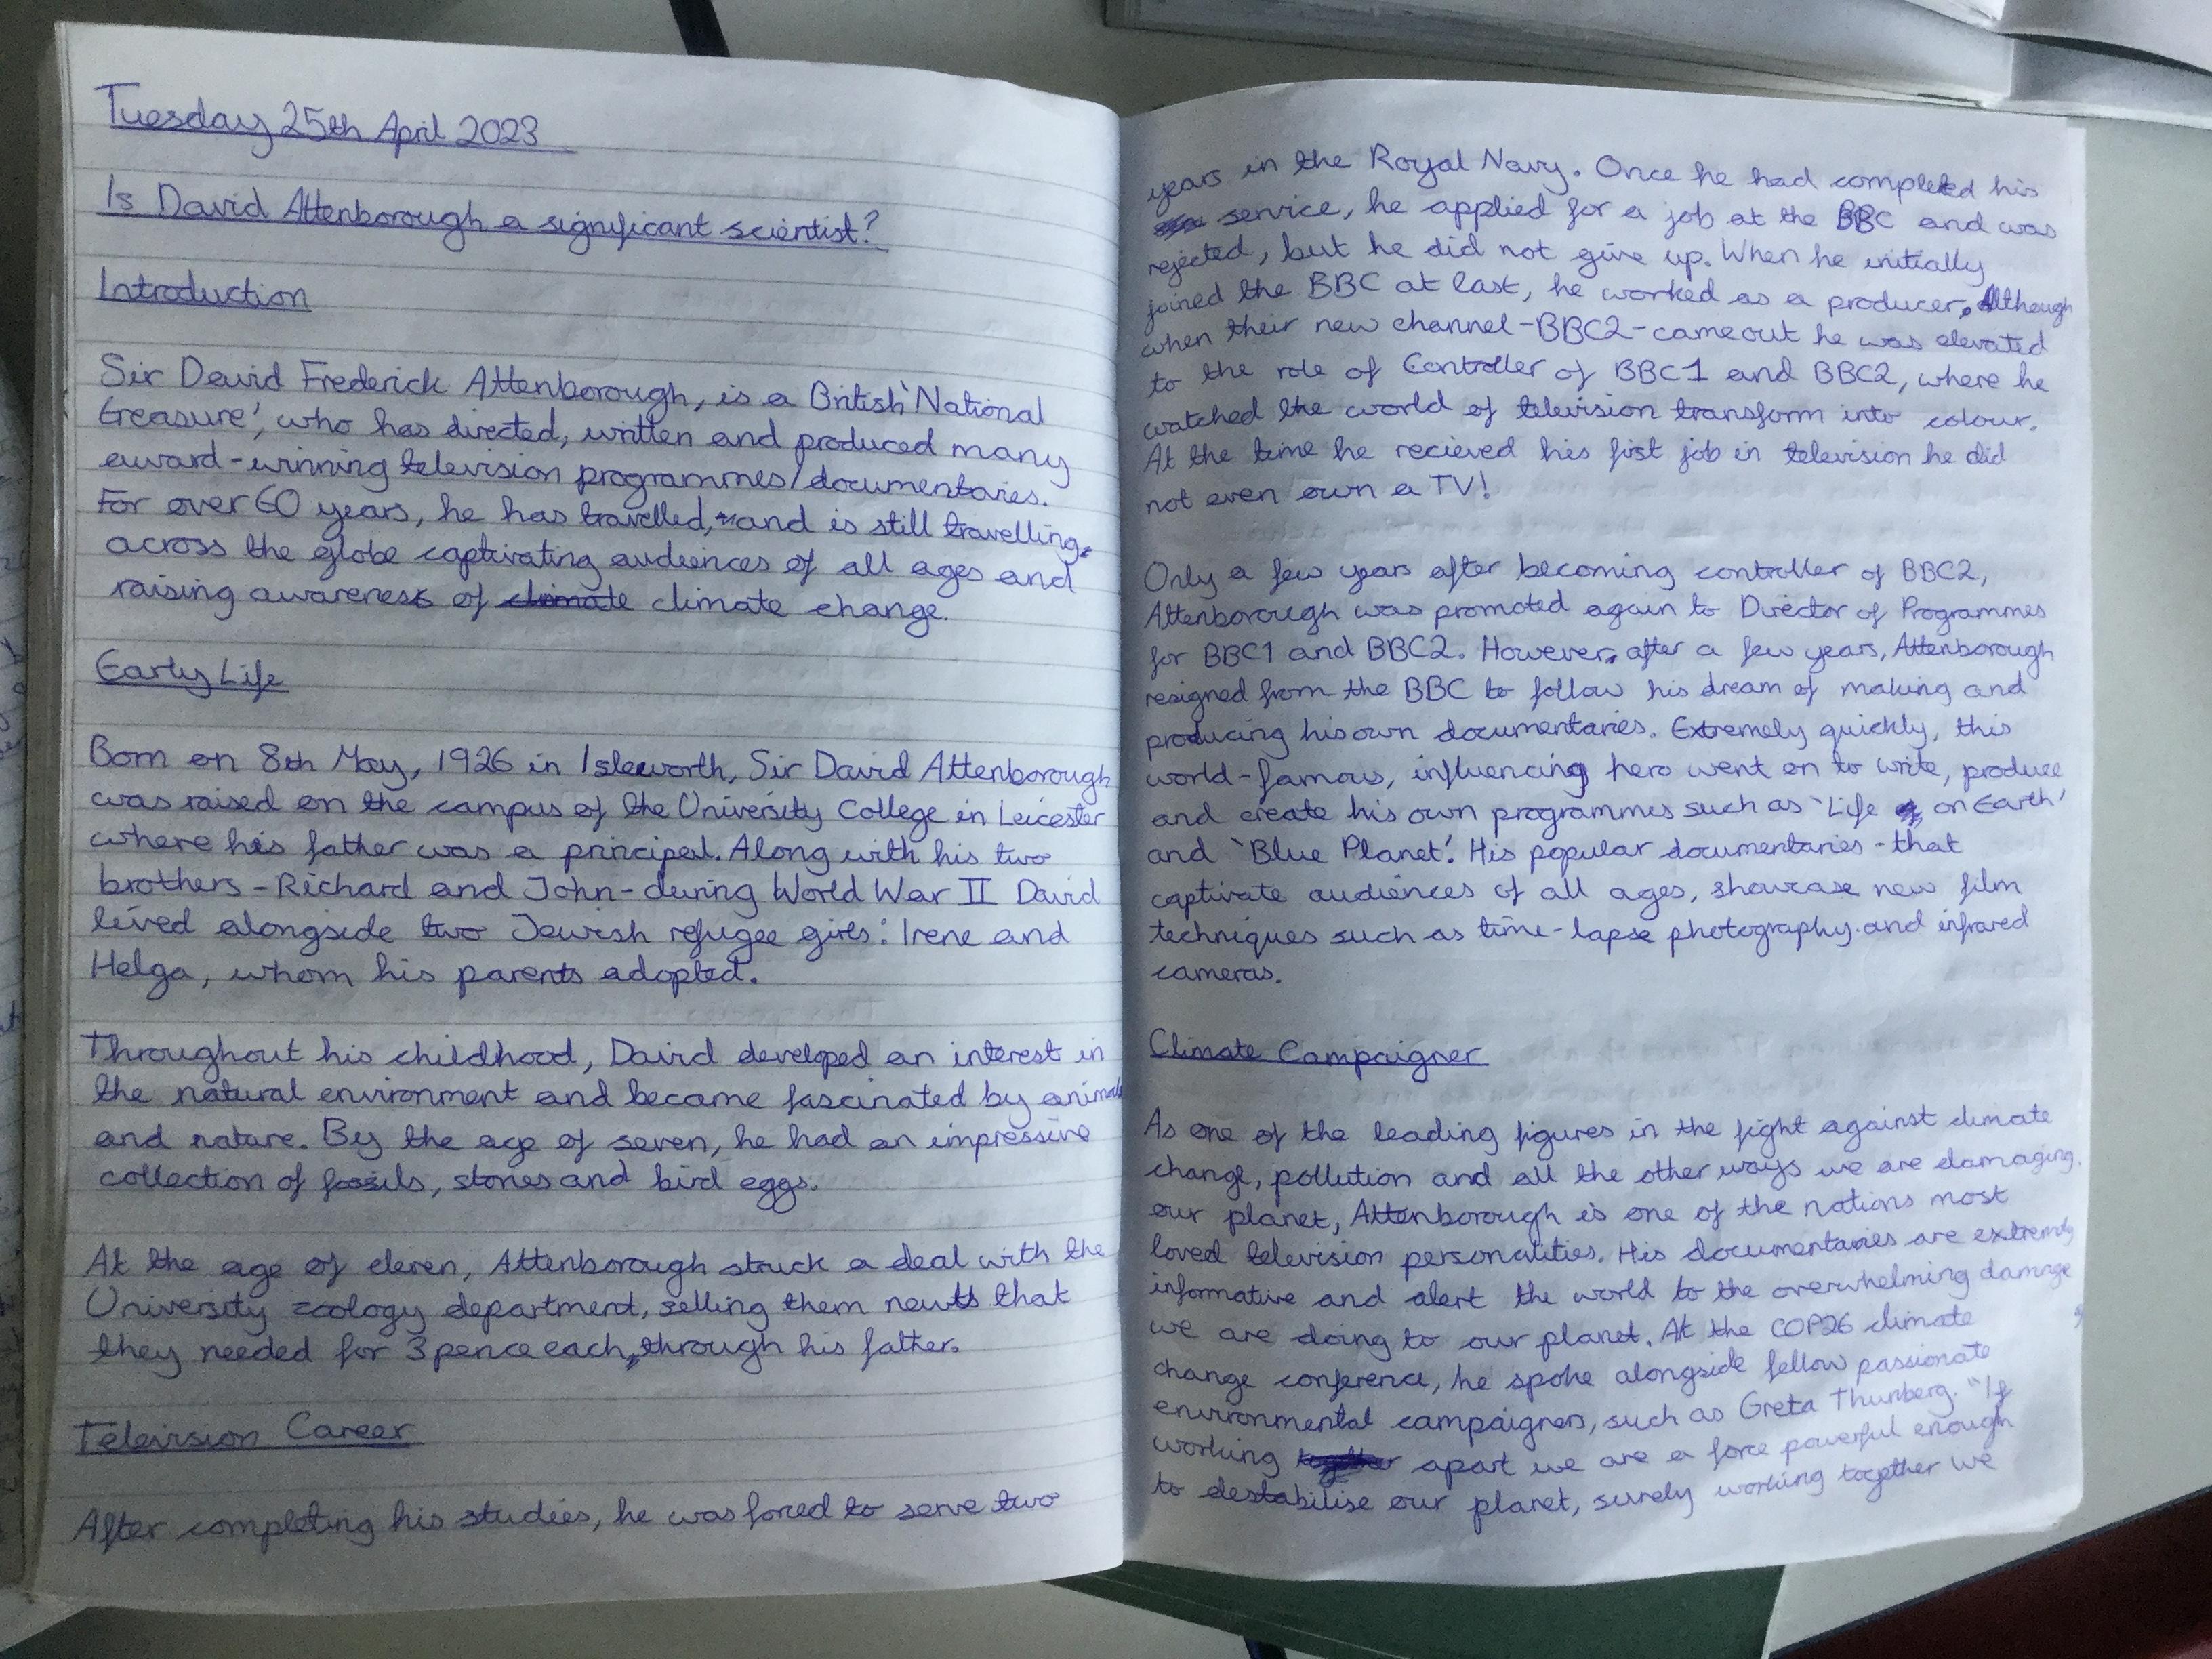 Tuesday 25th April 2023
Is David Attenborough a significant scientist?
Introduction
Sir David Frederick Attenborough, is a British 'National
treasure', who has directed, written and produced many
award-winning television programmes/documentaries.
For over 60 years, he has travelled, and is still travelling,
across the globe captivating audiences of all ages and
raising awareness of climate climate change.
Early Life
Born on 8th May, 1926 in Isleworth, Sir David Attenborough
was raised on the campus of the University College in Leicester
where his father was a principal. Along with his two
brothers - Richard and John - during World War II David
lived alongside two Jewish refugee girls: Irene and
Helga, whom his parents adopted.
Throughout his childhood, David developed an interest in
the natural environment and became fascinated by animals
and nature. By the age of seven, he had an impressive
collection of fossils, stones and bird eggs.
At the age of eleven, Attenborough struck a deal with the
University zoology department, selling them newts that
they needed for 3 pence each, through his father.
Television Career
After completing his studies, he was forced to serve two
years in the Royal Navy. Once he had completed his
service, he applied for a job at the BBC and was
rejected, but he did not give up. When he initially
joined the BBC at last, he worked as a producer. Although
when their new channel - BBC2 - came out he was elevated
to the role of Controller of BBC1 and BBC2, where he
watched the world of television transform into colour.
At the time he recieved his first job in television he did
not even own a TV!
Only a few years after becoming controller of BBC2,
Attenborough was promoted again to Director of Programmes
for BBC1 and BBC2. However, after a few years, Attenborough
resigned from the BBC to follow his dream of making and
producing his own documentaries. Extremely quickly, this
world-famous, influencing hero went on to write, produce
and create his own programmes such as 'Life on Earth'
and 'Blue Planet'. His popular documentaries - that
captivate audiences of all ages, showcase new film
techniques such as time-lapse photography and infrared
cameras.
Climate Campaigner
As one of the leading figures in the fight against climate
change, pollution and all the other ways we are damaging
our planet, Attenborough is one of the nations most
loved television personalities. His documentaries are extremely
informative and alert the world to the overwhelming damage
we are doing to our planet. At the COP26 climate
change conference, he spoke alongside fellow passionate
environmental campaigners, such as Greta Thunberg. "If
working together apart we are a force powerful enough
to destabilise our planet, surely working together we